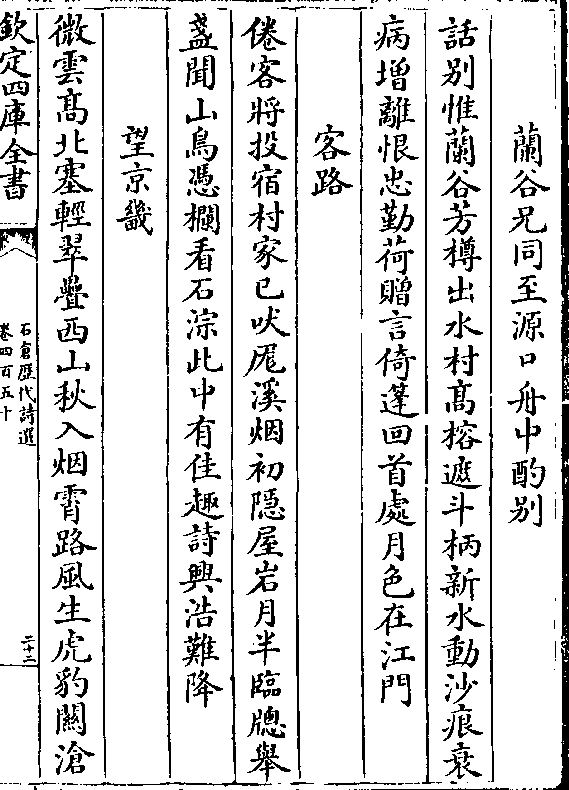 蘭谷兄同至源口舟中酌别
話别惟蘭谷芳樽出水村髙榕遮斗柄新水動沙痕衰
病增離恨忠勤荷贈言倚蓬回首處月色在江門
客路
倦客將投宿村家已吠厖溪烟初隱屋岩月半臨牕舉
盞聞山鳥憑欄看石淙此中有佳趣詩興浩難降
望京畿
微雲髙北塞輕翠疊西山秋入烟霄路風生虎豹關滄
欽定四庫全書
石倉歴代詩選
卷四百五十
二十二